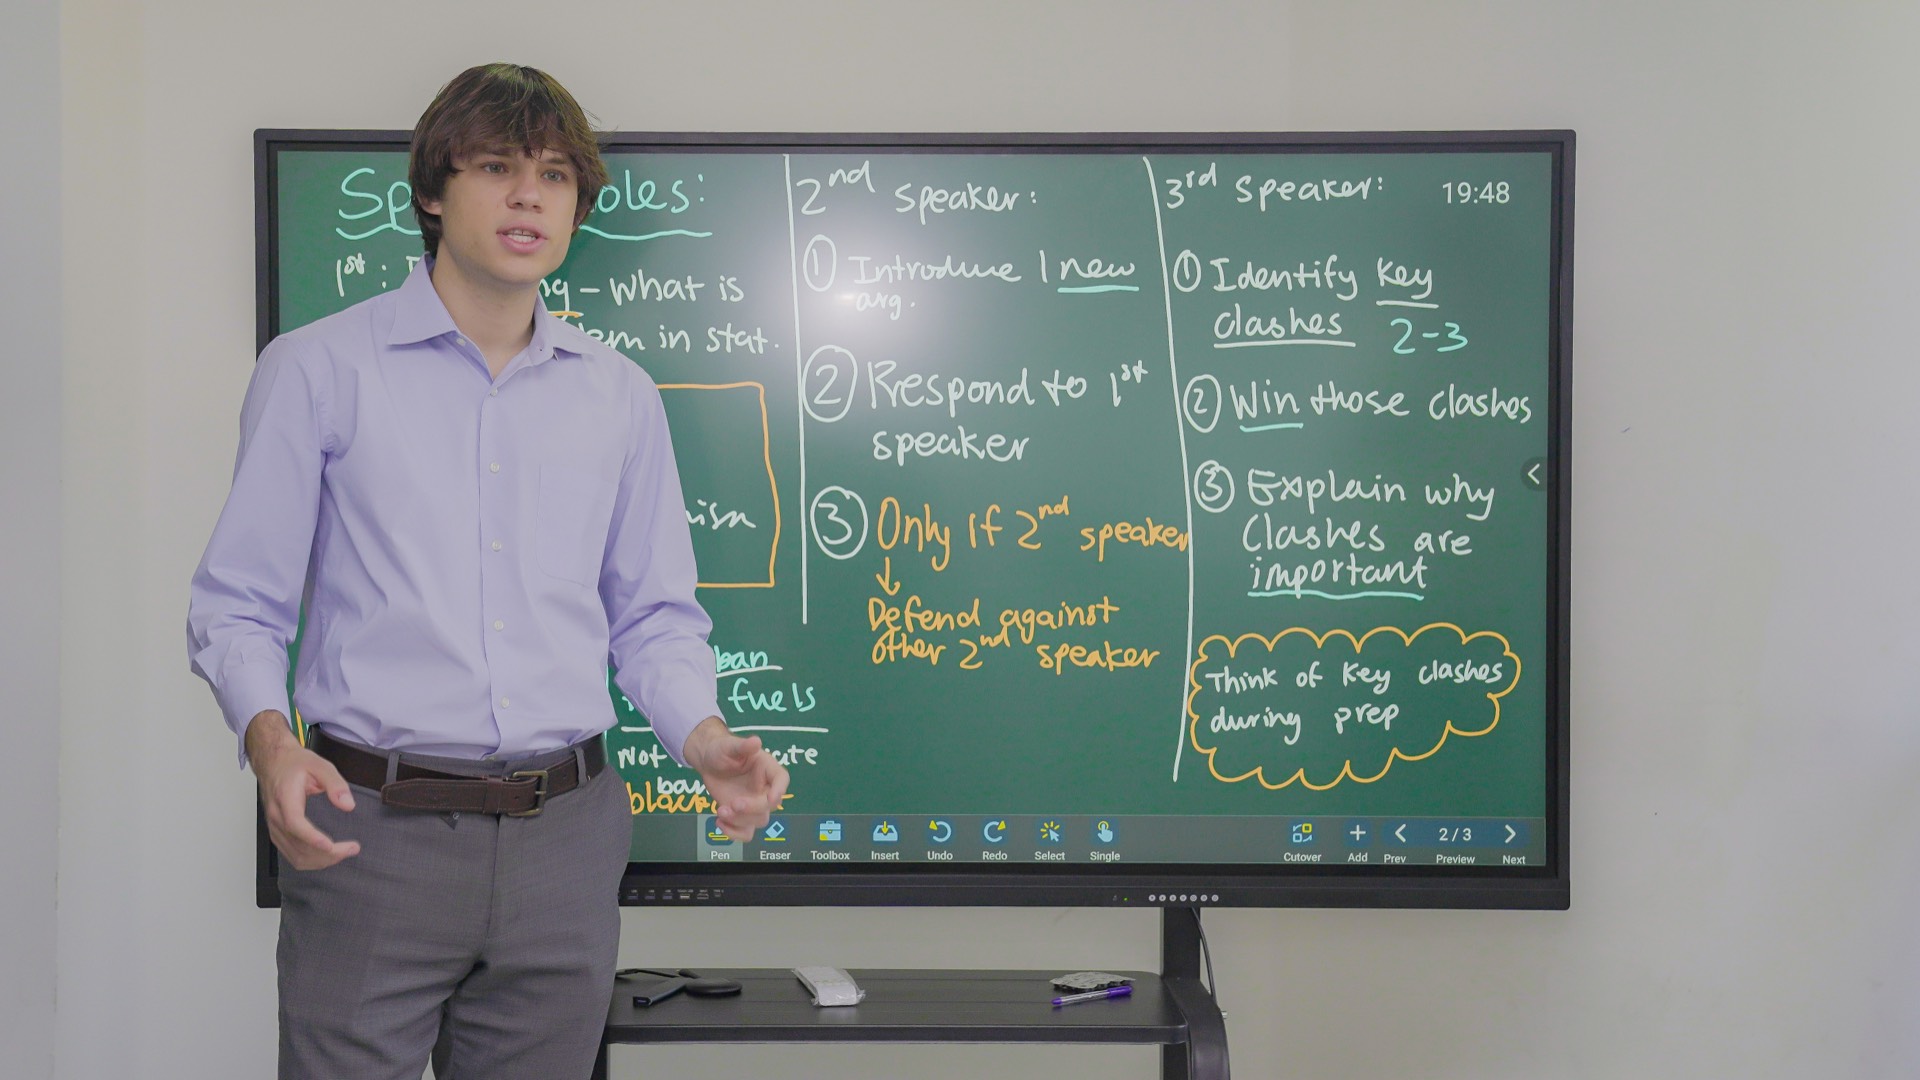 oles:
1st:
– What is
in stat.
ban
fuels
Not
2nd speaker:
① Introduce 1 new
arg.
② Respond to 1st
speaker
③ Only if 2nd speaker
↓
Defend against
other 2nd speaker
3rd speaker:
19:48
① Identify key
clashes 2-3
② Win those clashes
③ Explain why
clashes are
important
Think of key clashes
during prep
Pen Eraser Toolbox Insert Undo Redo Select Single Cutover Add Prev 2/3 Preview Next